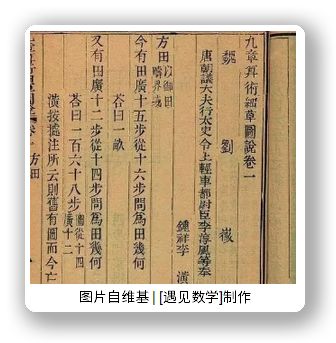 九章算術細草圖說卷一
魏 劉 徽
唐朝議大夫行太史令上輕車都尉臣李淳風等奉
鍾祥李 潢
方田以御田疇界域
今有田廣十五步從十六步問爲田幾何
荅曰一畝
又有田廣十二步從十四步問爲田幾何
荅曰一百六十八步圖從十四廣十二
潢按據注所云則舊有圖而今亡
方田
图片自维基 | [遇见数学]制作